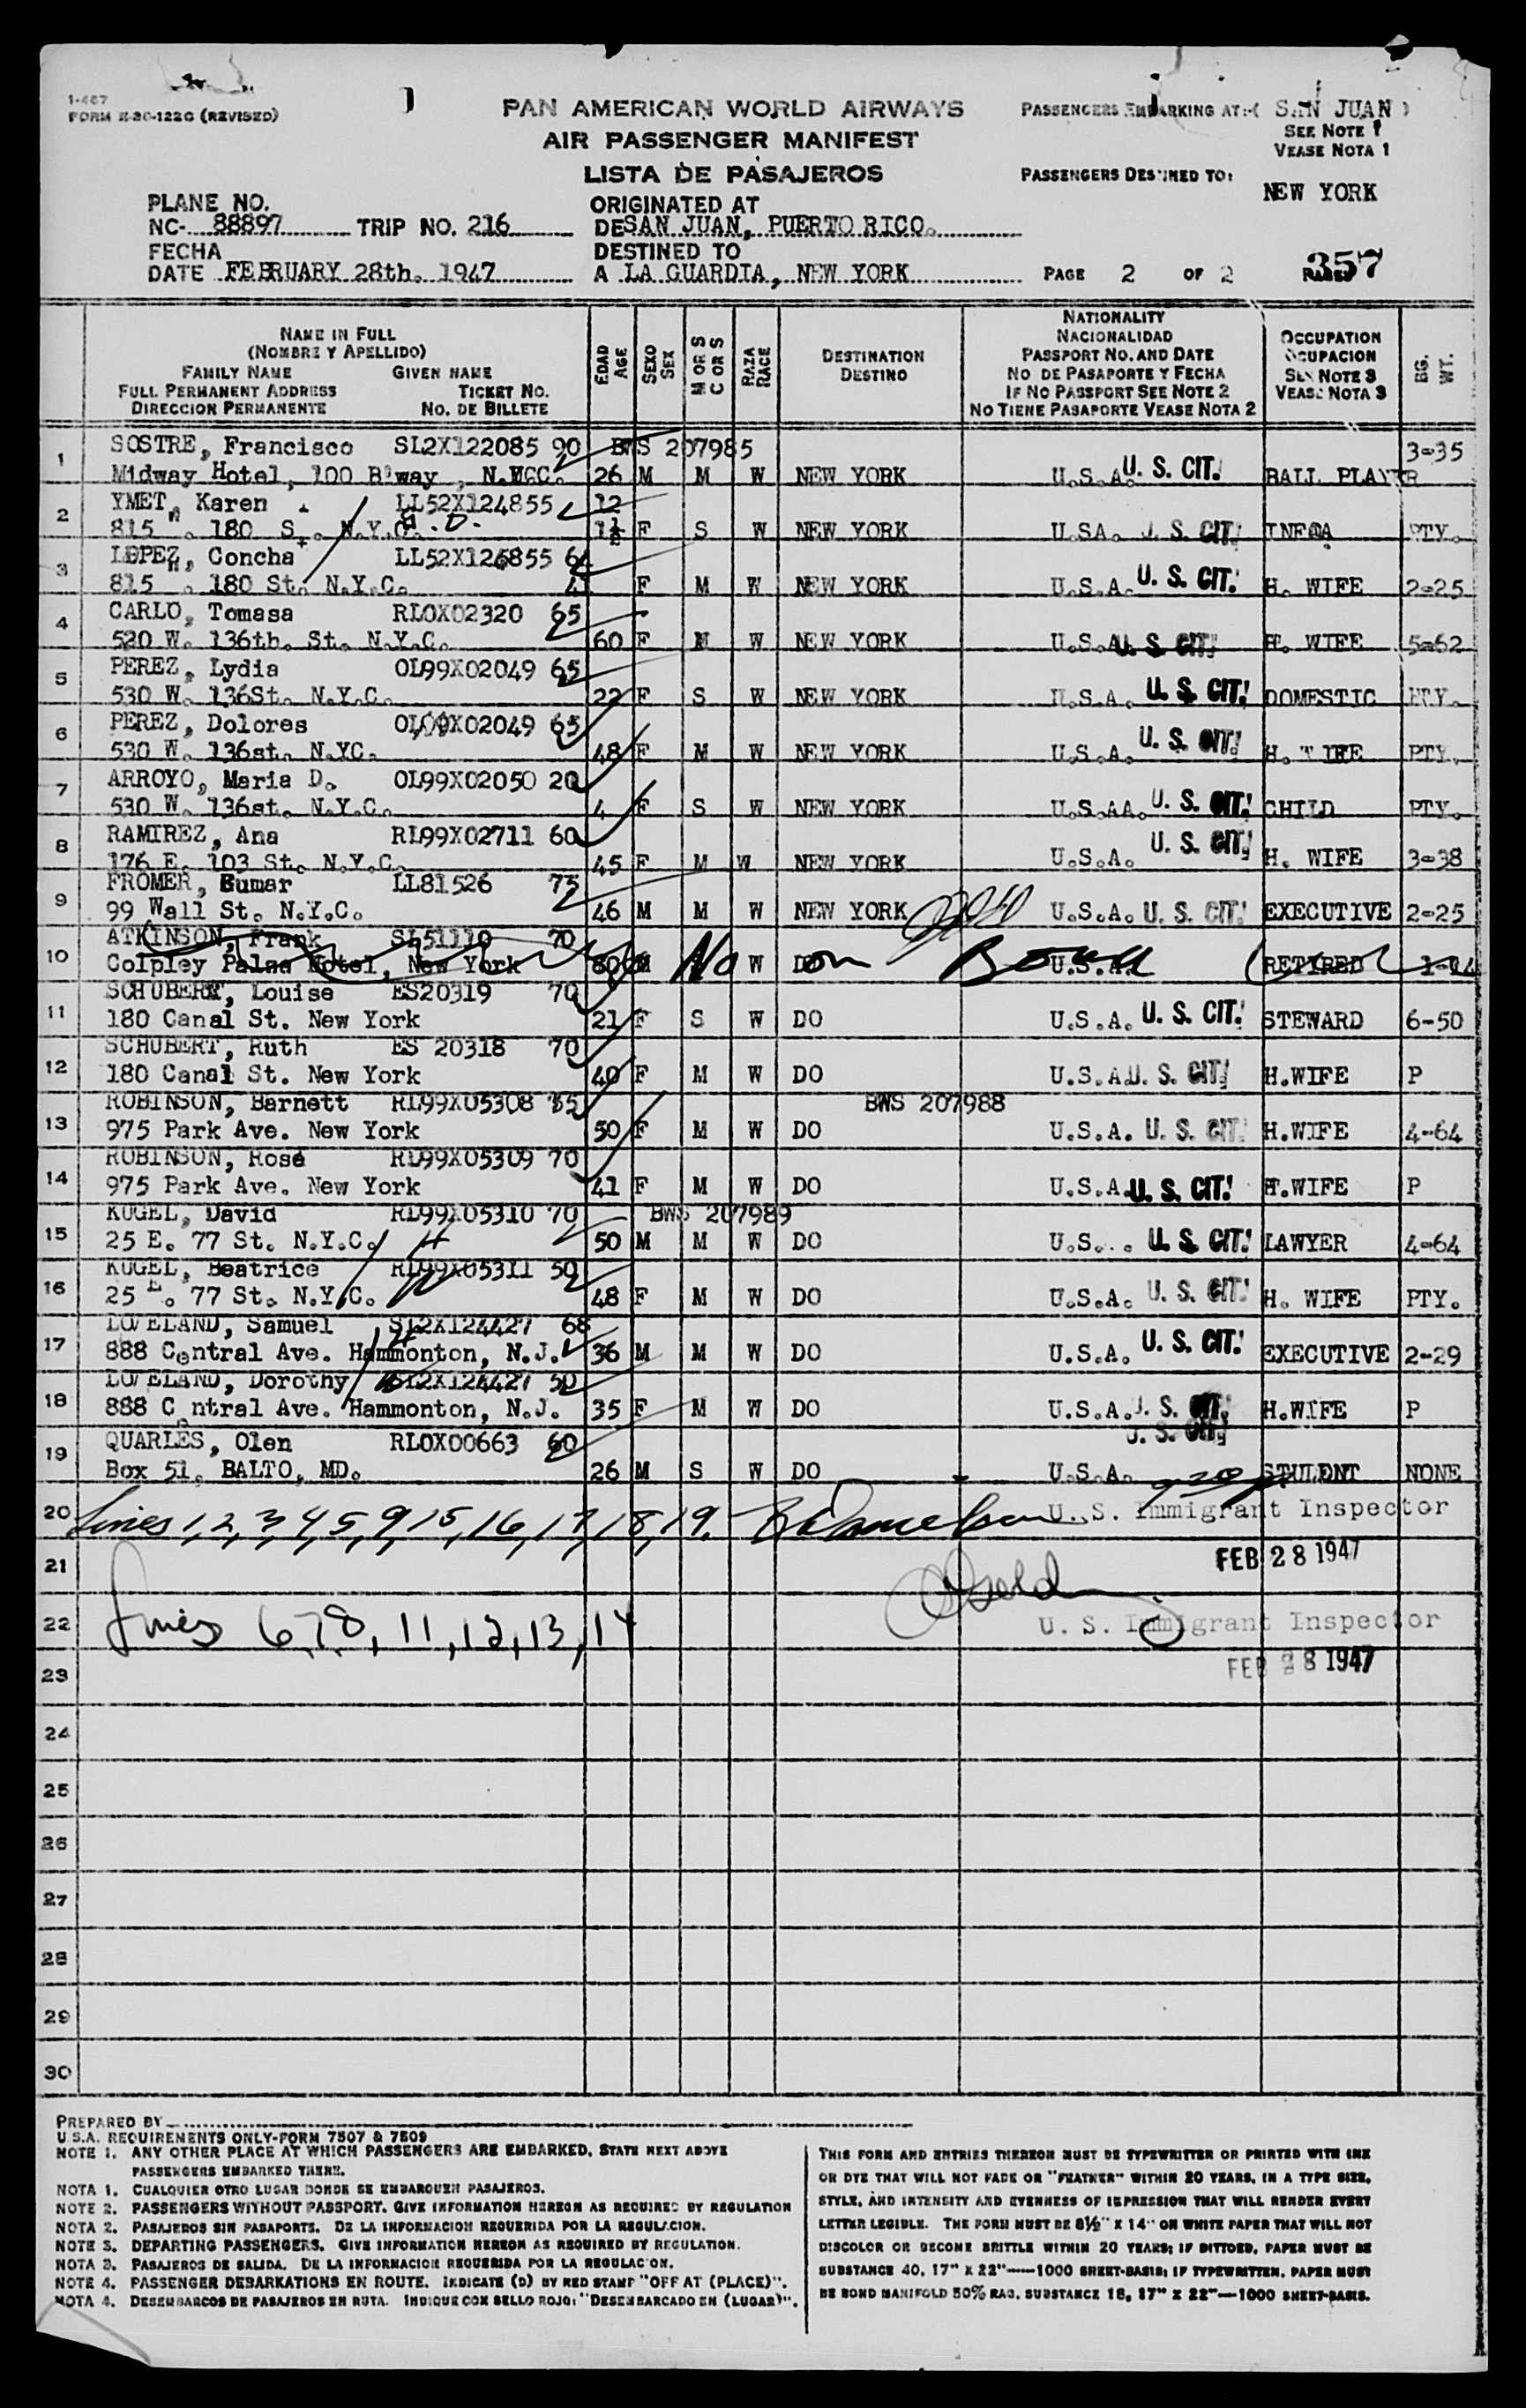 I-467
FORM E-30-122G (REVISED)
PAN AMERICAN WORLD AIRWAYS
AIR PASSENGER MANIFEST
LISTA DE PASAJEROS
PASSENGERS EMBARKING AT:-( SAN JUAN )
SEE NOTE 1
VEASE NOTA 1
PASSENGERS DESTINED TO:
NEW YORK
PLANE NO.
NC- 88897 TRIP NO. 216
ORIGINATED AT
DE SAN JUAN, PUERTO RICO.
FECHA
DATE FEBRUARY 28th. 1947
DESTINED TO
A LA GUARDIA, NEW YORK
PAGE 2 OF 2
357
NAME IN FULL
(NOMBRE Y APELLIDO)
FAMILY NAME GIVEN NAME
FULL PERMANENT ADDRESS TICKET NO.
DIRECCION PERMANENTE NO. DE BILLETE
EDAD AGE
SEXO SEX
M OR S C OR S
RAZA RACE
DESTINATION
DESTINO
NATIONALITY
NACIONALIDAD
PASSPORT NO. AND DATE
NO DE PASAPORTE Y FECHA
IF NO PASSPORT SEE NOTE 2
NO TIENE PASAPORTE VEASE NOTA 2
OCCUPATION
OCUPACION
SEE NOTE 3
VEASE NOTA 3
BG. WT.
1 SOSTRE, Francisco SL2X122085 90 BWS 207985 3-35
Midway Hotel, 100 B'way , N.Y.C. 26 M M W NEW YORK U.S.A. U. S. CIT. BALL PLAYER
2 YMET, Karen LL52X124855 12
815 W. 180 S . N.Y.C. 1½ F S W NEW YORK U.SA. U. S. CIT. INFOA PTY.
3 LOPEZ, Concha LL52X126855 64
815 W. 180 St. N.Y.C. 41 F M W NEW YORK U.S.A. U. S. CIT. H. WIFE 2-25
4 CARLO, Tomasa RLOX02320 65
520 W. 136th. St. N.Y.C. 60 F M W NEW YORK U.S.A U. S. CIT. H. WIFE 5-62
5 PEREZ, Lydia OL99X02049 65
530 W. 136St. N.Y.C. 22 F S W NEW YORK U.S.A. U. S. CIT. DOMESTIC PTY.
6 PEREZ, Dolores OL99X02049 65
530 W. 136st. N.YC. 48 F M W NEW YORK U.S.A. U. S. CIT. H. WIFE PTY.
7 ARROYO, Maria D. OL99X02050 20
530 W. 136st. N.Y.C. 4 F S W NEW YORK U.S.AA. U. S. CIT. CHILD PTY.
8 RAMIREZ, Ana RL99X02711 60
176 E. 103 St. N.Y.C. 45 F M W NEW YORK U.S.A. U. S. CIT. H. WIFE 3-38
9 FROMER, Sumar LL81526 75
99 Wall St. N.Y.C. 46 M M W NEW YORK U.S.A. U. S. CIT. EXECUTIVE 2-25
10 ATKINSON, Frank SL51110 70
Colpley Palsa Hotel, New York 60 M No W DO on Board U.S.A. RETIRED
11 SCHUBERT, Louise ES20319 70
180 Canal St. New York 21 F S W DO U.S.A. U. S. CIT. STEWARD 6-50
12 SCHUBERT, Ruth ES 20318 70
180 Canal St. New York 40 F M W DO U.S.A U. S. CIT. H.WIFE P
13 ROBINSON, Barnett RL99X05308 85 BWS 207988
975 Park Ave. New York 50 F M W DO U.S.A. U. S. CIT. H.WIFE 4-64
14 ROBINSON, Rose RL99X05309 70
975 Park Ave. New York 41 F M W DO U.S.A. U. S. CIT. H.WIFE P
15 KUGEL, David RL99X05310 70 BWS 207989
25 E. 77 St. N.Y.C. 50 M M W DO U.S.. . U. S. CIT. LAWYER 4-64
16 KUGEL, Beatrice RL99X05311 50
25 E. 77 St. N.Y.C. 48 F M W DO U.S.A. U. S. CIT. H. WIFE PTY.
17 LOVELAND, Samuel SL2X124427 68
888 Central Ave. Hammonton, N.J. 36 M M W DO U.S.A. U. S. CIT. EXECUTIVE 2-29
18 LOVELAND, Dorothy SL2X124427 50
888 C ntral Ave. Hammonton, N.J. 35 F M W DO U.S.A. U. S. CIT. H.WIFE P
19 QUARLES, Olen RLOX00663 60 U. S. CIT.
Box 51, BALTO, MD. 26 M S W DO U.S.A. STUDENT NONE
20 Lines 1, 2, 3, 4, 5, 9, 15, 16, 17, 18, 19. U. S. Immigrant Inspector
21 FEB 28 1947
22 Lines 6, 7, 8, 11, 12, 13, 14 U. S. Immigrant Inspector
23 FEB 28 1947
24
25
26
27
28
29
30
PREPARED BY
U.S.A. REQUIREMENTS ONLY-FORM 7507 & 7509
NOTE 1. ANY OTHER PLACE AT WHICH PASSENGERS ARE EMBARKED, STATE NEXT ABOVE
PASSENGERS EMBARKED THERE.
NOTA 1. CUALQUIER OTRO LUGAR DONDE SE EMBARQUEN PASAJEROS.
NOTE 2. PASSENGERS WITHOUT PASSPORT. GIVE INFORMATION HEREON AS REQUIRED BY REGULATION
NOTA 2. PASAJEROS SIN PASAPORTE. DE LA INFORMACION REQUERIDA POR LA REGULACION.
NOTE 3. DEPARTING PASSENGERS. GIVE INFORMATION HEREON AS REQUIRED BY REGULATION.
NOTA 3. PASAJEROS DE SALIDA. DE LA INFORMACION REQUERIDA POR LA REGULACION.
NOTE 4. PASSENGER DEBARKATIONS EN ROUTE. INDICATE (D) BY RED STAMP "OFF AT (PLACE)".
NOTA 4. DESEMBARCOS DE PASAJEROS EN RUTA. INDIQUE CON SELLO ROJO: "DESEMBARCADO EN (LUGAR)".
THIS FORM AND ENTRIES THEREON MUST BE TYPEWRITTER OR PRINTED WITH INK
OR DYE THAT WILL NOT FADE OR "FEATHER" WITHIN 20 YEARS, IN A TYPE SIZE,
STYLE, AND INTENSITY AND EVENNESS OF IMPRESSION THAT WILL RENDER EVERY
LETTER LEGIBLE. THE FORM MUST BE 8½" X 14" ON WHITE PAPER THAT WILL NOT
DISCOLOR OR BECOME BRITTLE WITHIN 20 YEARS; IF DITTOED, PAPER MUST BE
SUBSTANCE 40, 17" X 22"—1000 SHEET-BASIS; IF TYPEWRITTEN, PAPER MUST
BE BOND MANIFOLD 50% RAG, SUBSTANCE 18, 17" X 22"—1000 SHEET-BASIS.